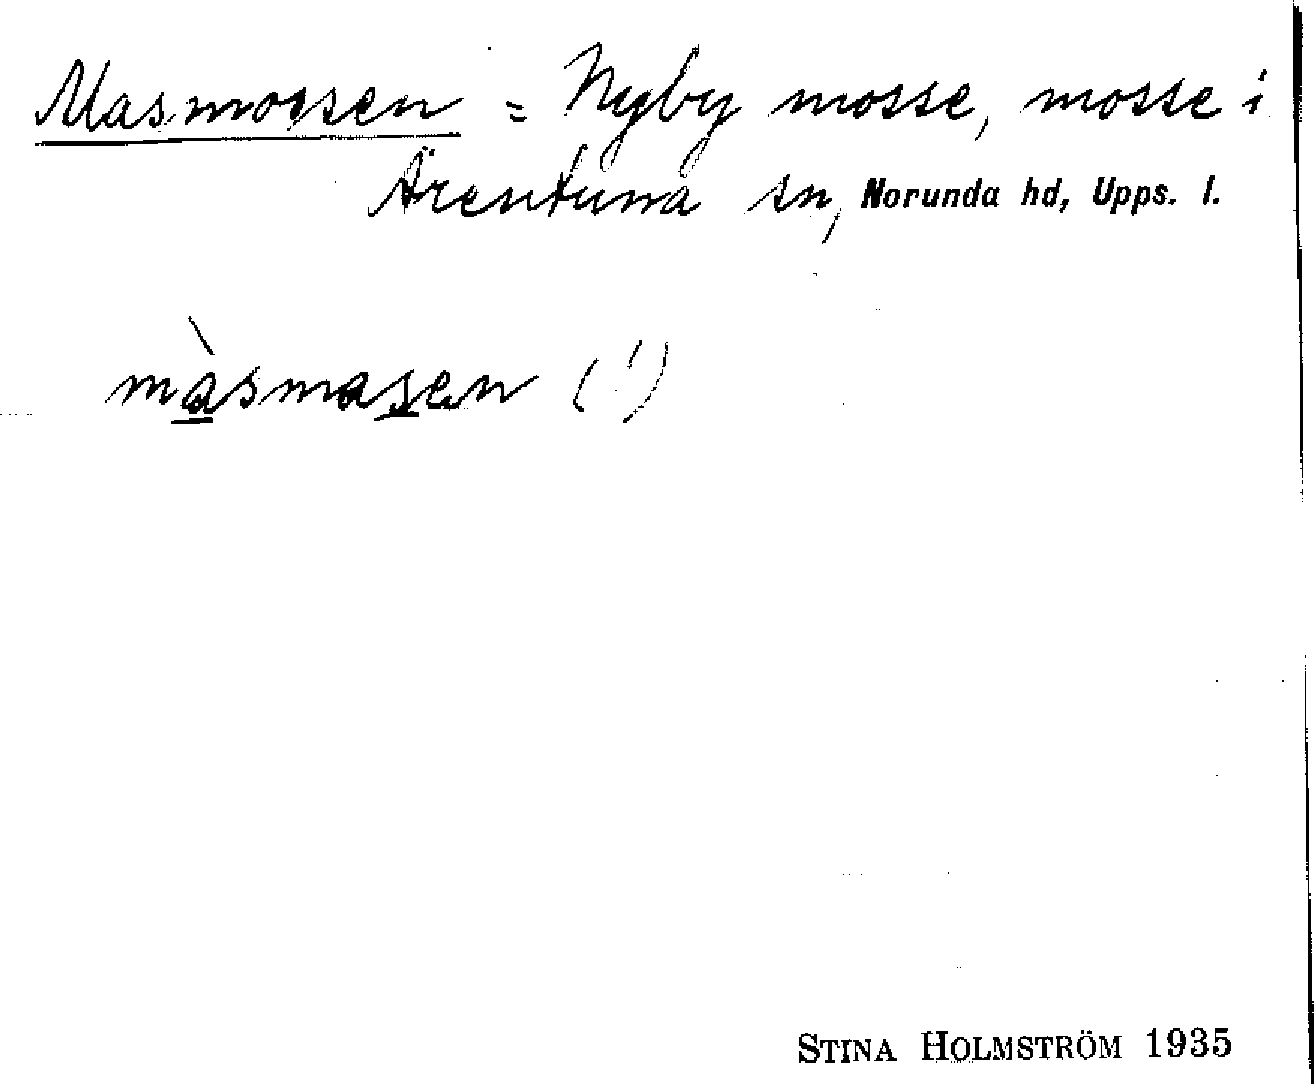 Masmossen = Nyby mosse, mosse i
Ärentuna sn, Norunda hd, Upps. l.
màsmasen (!)
STINA HOLMSTRÖM 1935